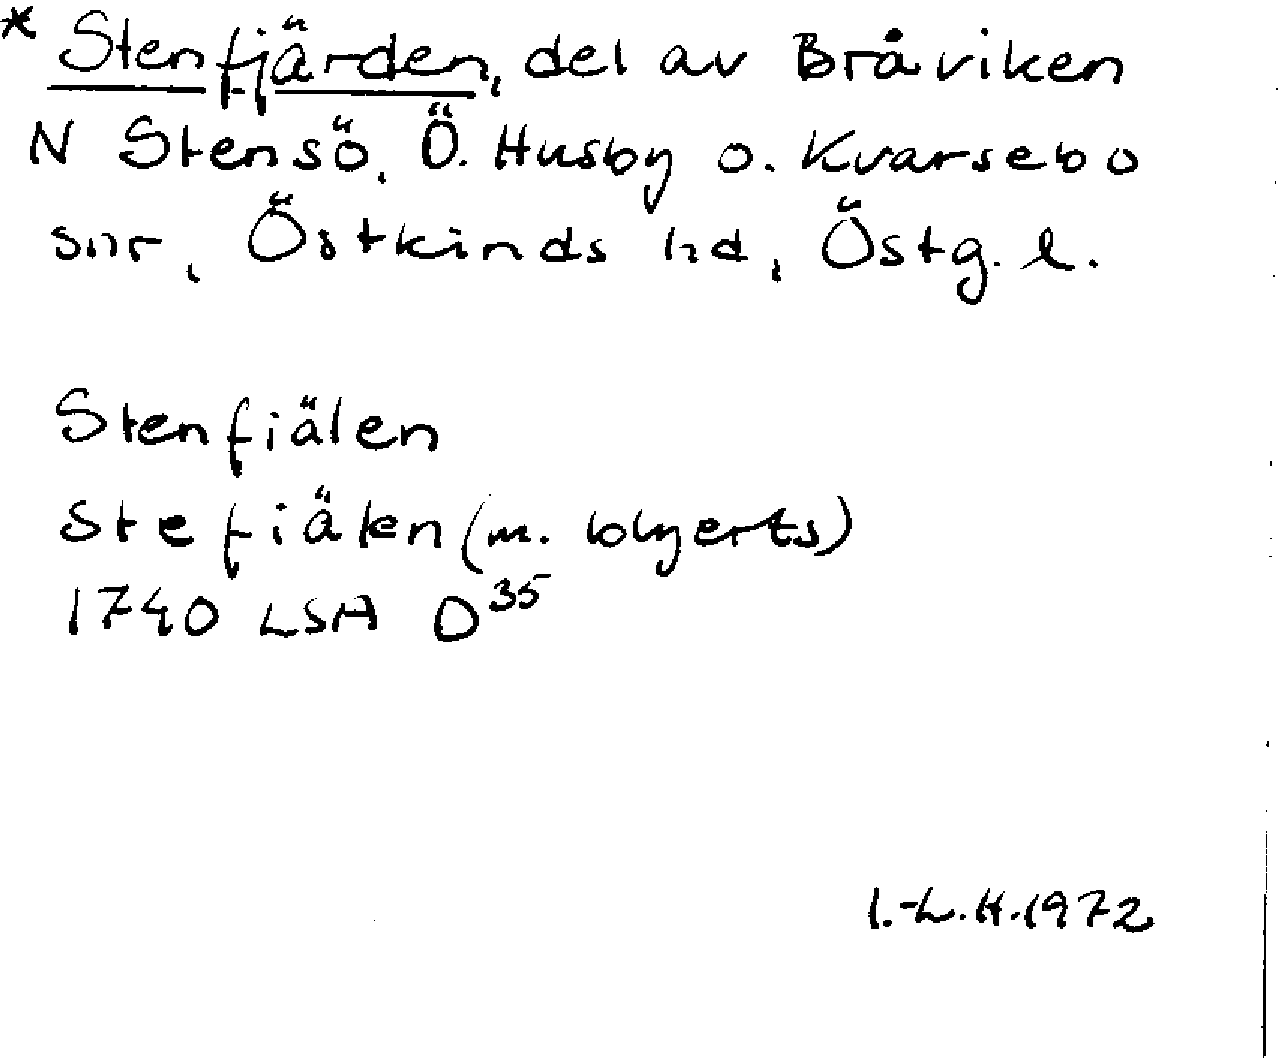 * Stenfjärden, del av Bråviken
N Stensö, Ö. Husby o. Kvarsebo
snr, Östkinds hd, Östg. l.
Stenfiälen
Stefiälen (m. blyerts)
1740 LSA D35
I.-L.H.1972